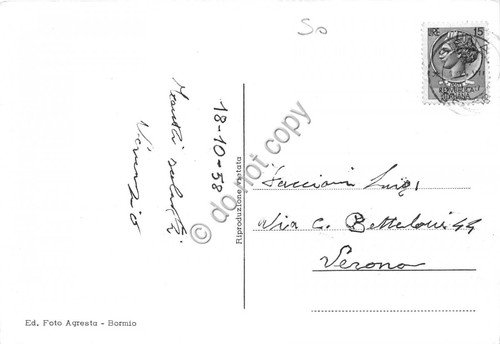 So
LIRE 15
REPUBBLICA
ITALIANA
18-10-58
saluti
Vincenzo
Riproduzione vietata
Faccioni Luigi
Via C. Betteloni 44
Verona
Ed. Foto Agresta - Bormio
© do not copy